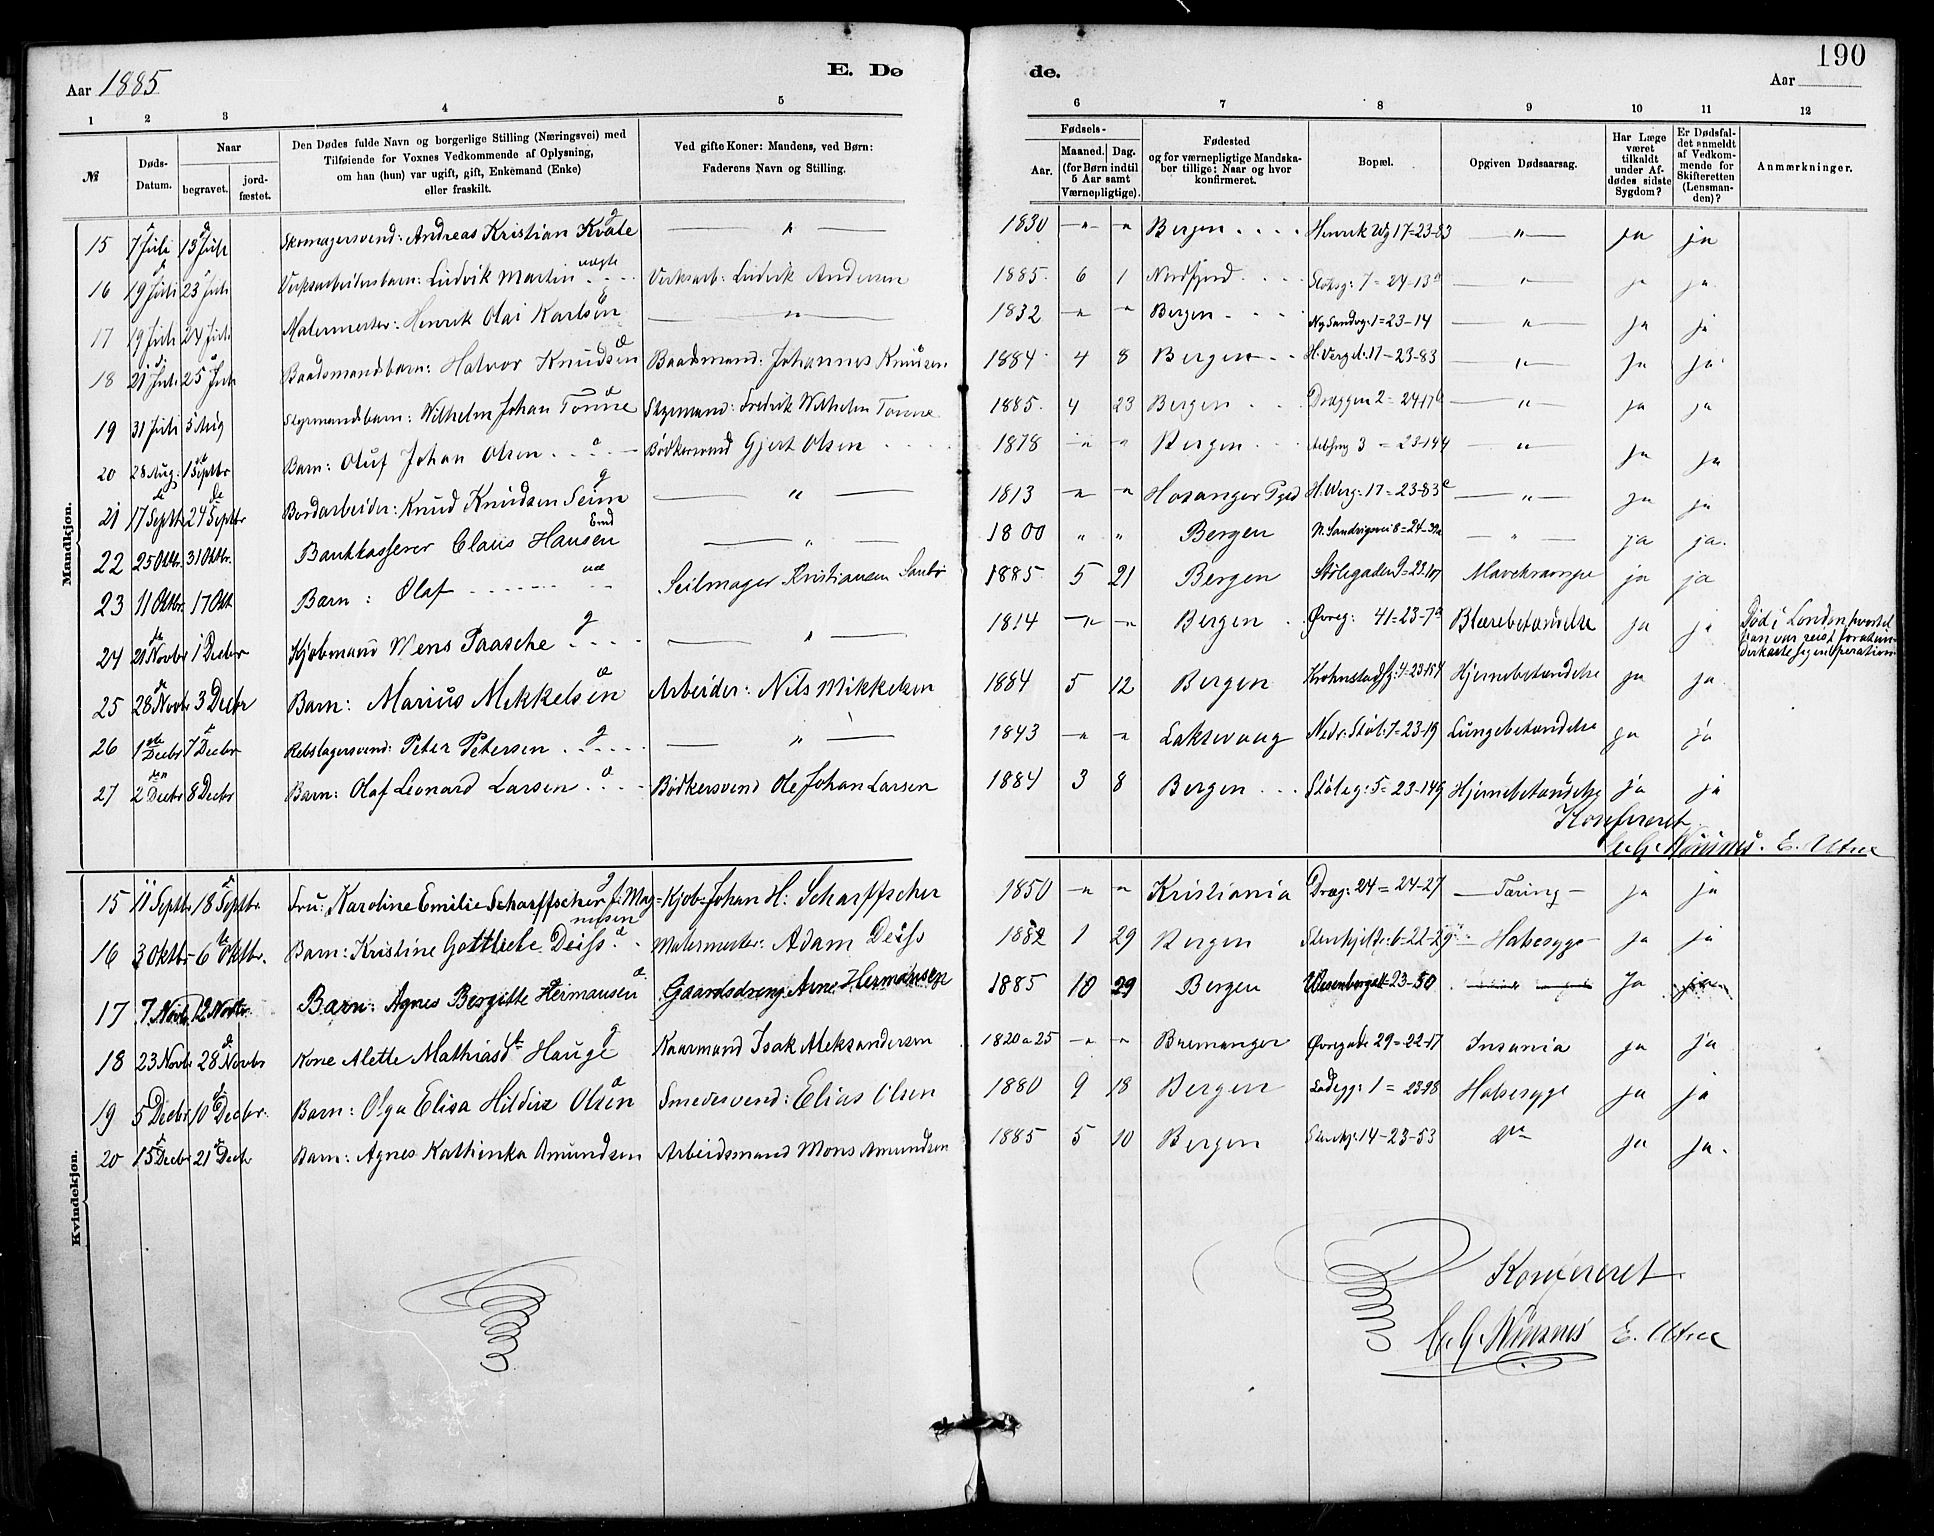 190
Aar 1885
E. Dø
de.
Aar
1 2 3 4 5 6 7 8 9 10 11 12
№
Døds-Datum.
Naar
begravet.
jord-fæstet.
Den Dødes fulde Navn og borgerlige Stilling (Næringsvei) med
Tilføiende for Voxnes Vedkommende af Oplysning,
om han (hun) var ugift, gift, Enkemand (Enke)
eller fraskilt.
Ved gifte Koner: Mandens, ved Børn:
Faderens Navn og Stilling.
Fødsels-
Aar.
Maaned. Dag.
(for Børn indtil
5 Aar samt
Værnepligtige).
Fødested
og for værnepligtige Mandska-
ber tillige: Naar og hvor
konfirmeret.
Bopæl.
Opgiven Dødsaarsag.
Har Læge
været
tilkaldt
under Af-
dødes sidste
Sygdom?
Er Dødsfal-
det anmeldt
af Vedkom-
mende for
Skifteretten
(Lensman-
den)?
Anmærkninger.
Mandkjøn.
15 7 Juli 13 Juli Skomagersvend: Andreas Kristian g — " — 1830 " " Bergen Henrik Wg 17=23-83 — " — ja ja
16 19 Juli 23 Juli Verksarbeidersbarn: Ludvik Martin uægte Verksarb: Ludvik Andersen 1885 6 1 Nordfjord 7=24-13 — " — ja ja
17 19 Juli 24 Juli Malermester: Henrik Olai Karlsen — " — 1832 " " Bergen Ny Sandvg: 1=23-14 — " — ja ja
18 21 Juli 25 Juli Baadsmandbarn: Halvor Knudsen Baadsmand: Johannes Knudsen 1884 4 8 Bergen H. Verg: 17=23-83 — " — ja ja
19 31 Juli 5 Aug Styrmandsbarn: Wilhelm Johan Tonne Styrmand: Fredrik Wilhelm Tonne 1885 4 23 Bergen Dræggen 2=24-17b — " — ja ja
20 28 Aug: 1 Septbr Barn: Oluf Johan Olsen Bødkersvend Gjert Olsen 1878 " " Bergen 3=23-144 — " — ja ja
21 17 Septbr 24 Septbr Bordarbeider: Knud Knudsen Seim g — " — 1813 " " Hosanger Pgd H. Werg: 17=23-83 — " — ja ja
22 25 Oktbr. 31 Oktbr. Bankkasserer Claus Hansen Emd — " — 1800 " " Bergen N. Sandvigsvei 8=24-32a — " — ja ja.
23 11 Oktbr. 17 Okt Barn: Olaf Seilmager Kristiansen 1885 5 21 Bergen Stølegaden 9=23-107 Mavekrampe ja ja
24 21 Novbr 1 Decbr Kjøbmand Mens Paasche g — " — 1814 " " Bergen Øvreg: 41=23-7a Blærebetændelse ja ja Død i London hvortil
han var reist for at un-
derkaste sig en Operation
25 28 Novbr 3 Decbr Barn: Marius Mikkelsen Arbeider: Nils Mikkelsen 1884 5 12 Bergen Krohnstadg: 4=23-154 Hjernebetændelse ja ja
26 1 Decbr 7 Decbr Rebslagersvend: Peter Petersen g — " — 1843 " " Laksevaag Nedr: Støl: 7=23-19 Lungebetændelse ja ja
27 2 Decbr 8 Decbr Barn: Olaf Leonard Larsen Bødkersvend Ole Johan Larsen 1884 3 8 Bergen Støleg: 5=23-149 Hjernebetændelse ja ja
Konfereret
E. Utne
Kvindekjøn.
15 11 Septbr 18 Septbr. Fru: Karoline Emilie Scharffscher f: Mag-
nusen g Kjøb: Johan H: Scharffscher 1850 " " Kristiania Dræg: 24=24-27 — Tæring — ja ja
16 3 Oktbr 6 Oktbr. Barn: Kristine Gottliebe Deiss Malermester: Adam Deiss 1882 1 29 Bergen 6=22-29 Halsesyge ja ja
17 7 Novb. 12 Novbr. Barn: Agnes Birgitte Hermansen Gaardsdreng Arne Hermansen 1885 10 29 Bergen Wesenberg 23-50 Ja ja
18 23 Novbr 28 Novbr Kone Alette Mathiasdt Hauge g Kaarmand Isak Aleksandersen 1820 a 25 " " Bremanger Øvregade 29=22-17 Insania ja ja
19 5 Decbr 10 Decbr. Barn: Olga Elisa Olsen Smedesvend: Elias Olsen 1880 9 18 Bergen Ladegg: 1=23-98 Halsesyge ja ja
20 15 Decbr 21 Decbr Barn: Agnes Kathinka Amundsen Arbeidsmand Mons Amundsen 1885 5 10 Bergen Stenkj: 14-23-53 ja ja.
Konfereret
E. Utne